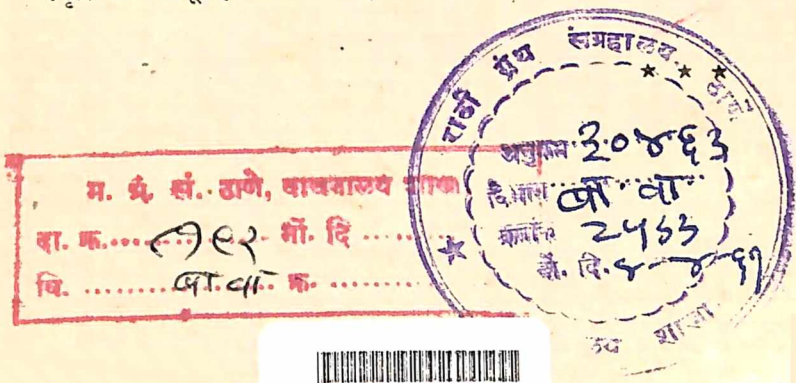 म. ग्रं. सं. ठाणे, वाचनालय शाखा
दा. क्र. १९२ नों. दि
वि. बा वा क्र.
राठी ग्रंथ संग्रहालय. ठाणें
अनुक्रम ३०४६३
विभाग बा वा
क्रमांक २५३३
नों. दि. ४-४-६१
लय शाखा